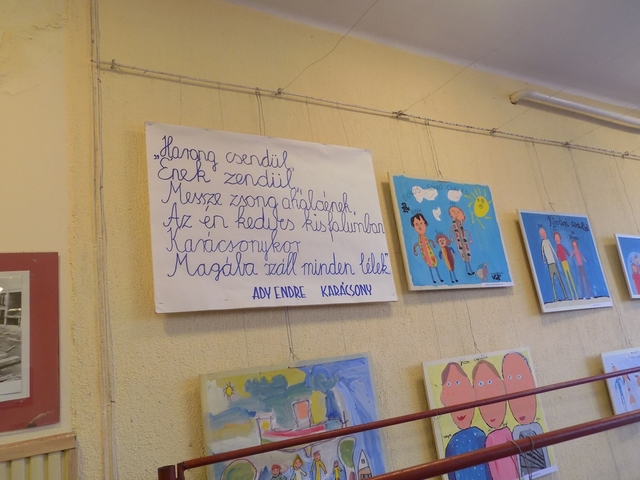 „Harang csendül,
Ének zendül,
Messze zsong a hálaének,
Az én kedves kisfalumban
Karácsonykor
Magába száll minden lélek”
ADY ENDRE KARÁCSONY